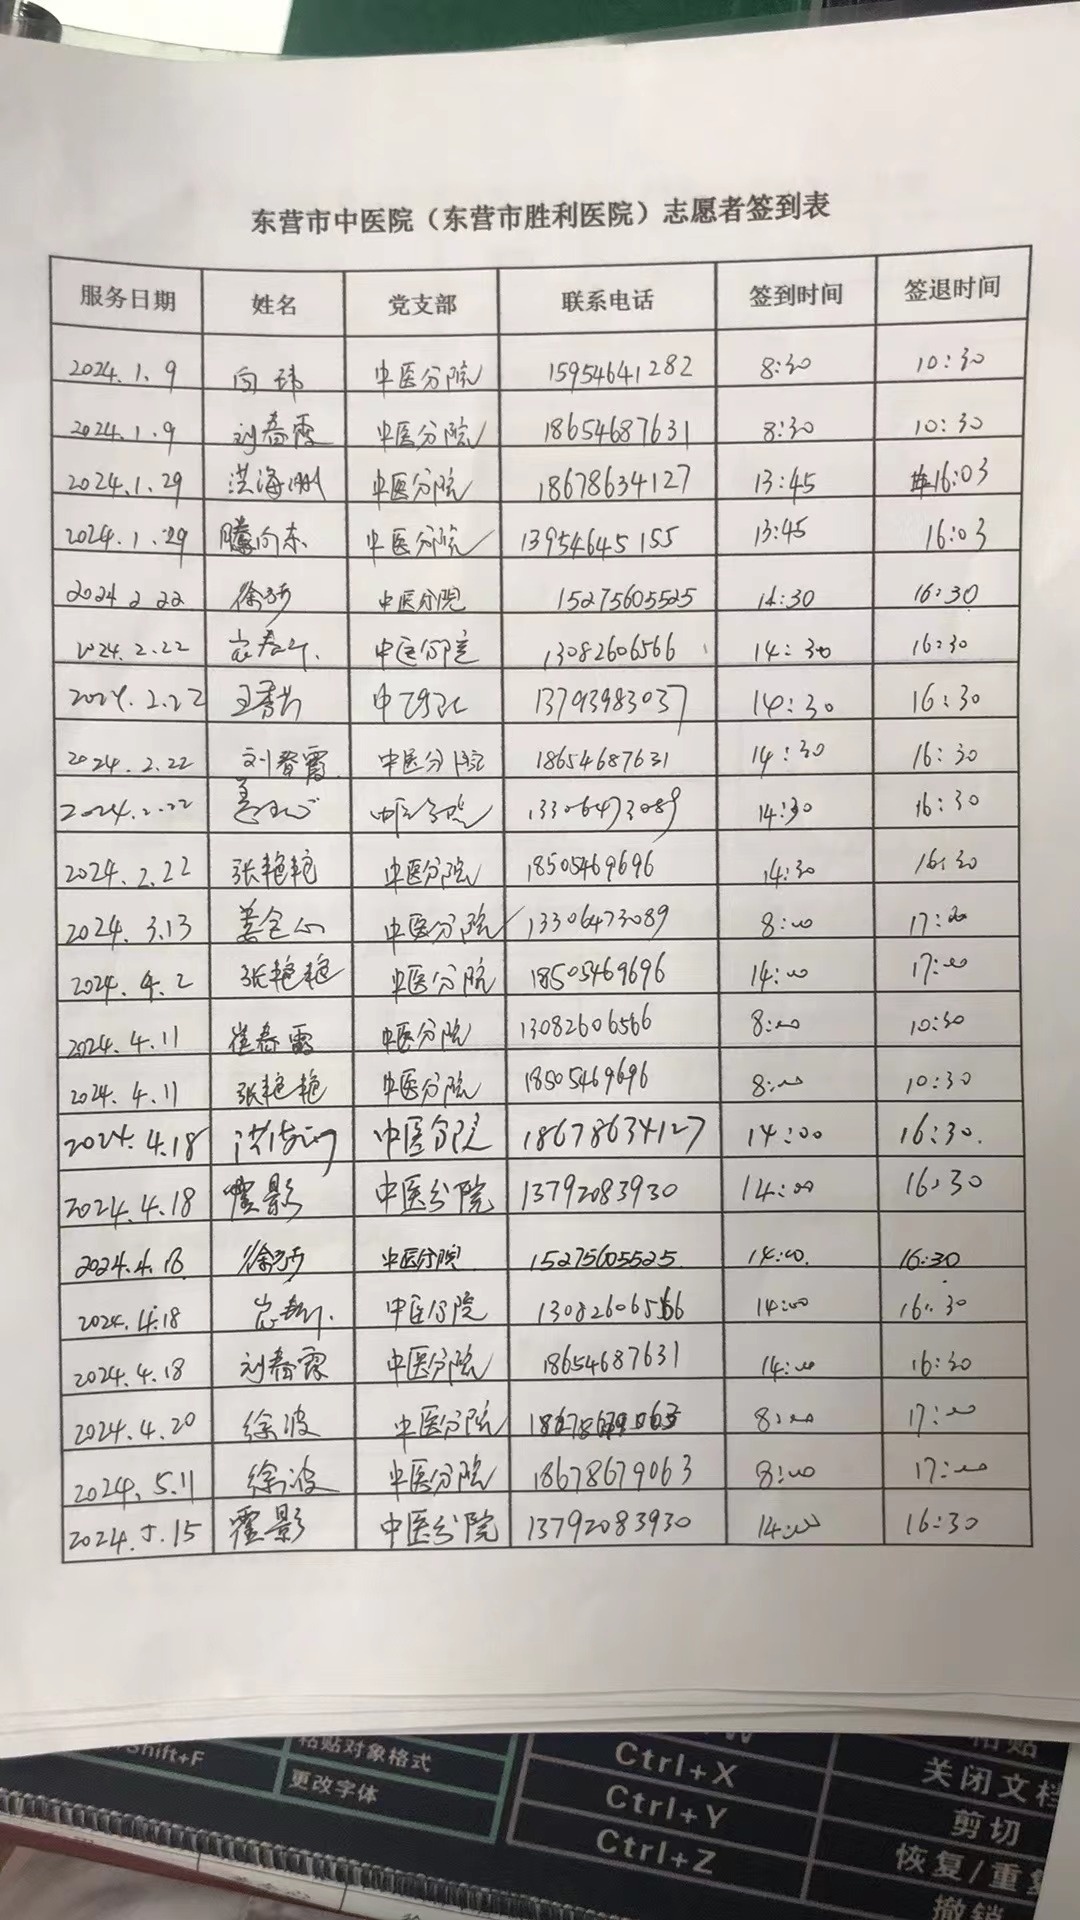 东营市中医院（东营市胜利医院）志愿者签到表
服务日期 姓名 党支部 联系电话 签到时间 签退时间
2024.1.9 向玮 中医分院 15954641282 8:30 10:30
2024.1.9 刘春霞 中医分院 18654687631 8:30 10:30
2024.1.29 洪海洲 中医分院 18678634127 13:45 16:03
2024.1.29 滕向东 中医分院 13954645155 13:45 16:03
2024 2 22 徐 中医分院 15275605525 14:30 16:30
2024.2.22 中医分院 13082606566 14:30 16:30
2024.2.22 王 中 13793983037 14:30 16:30
2024.2.22 刘春霞 中医分院 18654687631 14:30 16:30
2024.2.22 姜 中医分院 13306473089 14:30 16:30
2024.2.22 张艳艳 中医分院 18505469696 14:30 16:30
2024.3.13 姜 中医分院 13306473089 8:00 17:00
2024.4.2 张艳艳 中医分院 18505469696 14:00 17:00
2024.4.11 崔春霞 中医分院 13082606566 8:00 10:30
2024.4.11 张艳艳 中医分院 18505469696 8:00 10:30
2024.4.18 洪海洲 中医分院 18678634127 14:00 16:30.
2024.4.18 霍影 中医分院 13792083930 14:00 16:30
2024.4.18 徐 中医分院 15275605525. 14:00. 16:30
2024.4.18 中医分院 13082606566 14:00 16:30
2024.4.18 刘春霞 中医分院 18654687631 14:00 16:30
2024.4.20 徐波 中医分院 18678679063 8:00 17:00
2024.5.11 徐波 中医分院 18678679063 8:00 17:00
2024.5.15 霍影 中医分院 13792083930 14:00 16:30
Shift+F 粘贴对象格式 粘贴
更改字体 Ctrl+X 关闭文档
Ctrl+Y 剪切
Ctrl+Z 恢复/重复
撤销